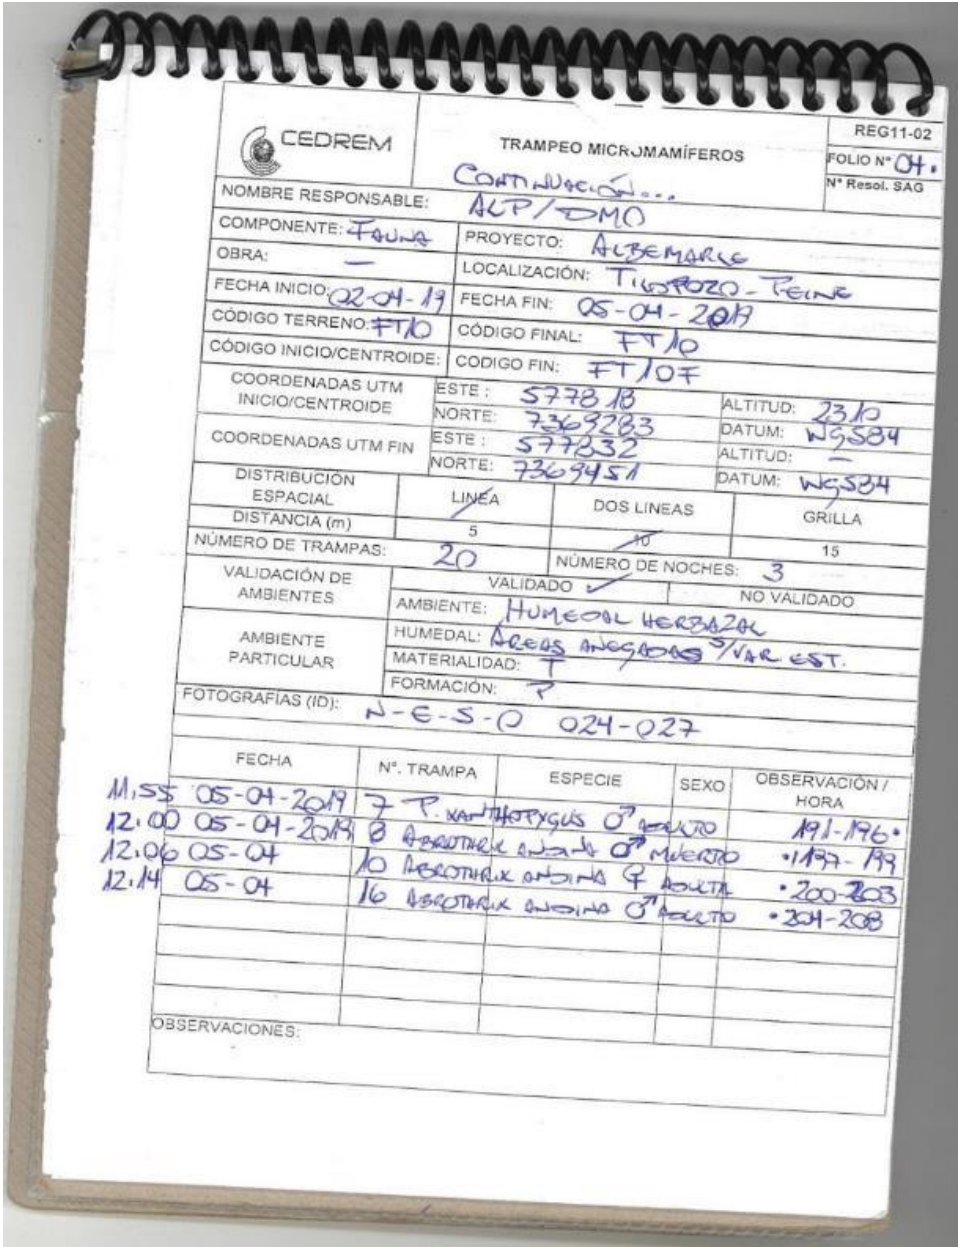 CEDREM
TRAMPEO MICROMAMÍFEROS
REG11-02
FOLIO N° 04.
N° Resol. SAG
CONTINUACIÓN...
NOMBRE RESPONSABLE: ALP/DMO
COMPONENTE: FAUNA PROYECTO: ALBEMARLE
OBRA: — LOCALIZACIÓN: TILOPOZO - PEINE
FECHA INICIO: 02-04-19 FECHA FIN: 05-04-2019
CÓDIGO TERRENO: FT10 CÓDIGO FINAL: FT10
CÓDIGO INICIO/CENTROIDE: CODIGO FIN: FT10F
COORDENADAS UTM INICIO/CENTROIDE ESTE : 577818 ALTITUD: 2310
NORTE: 7369283 DATUM: WGS84
COORDENADAS UTM FIN ESTE : 577832 ALTITUD: —
NORTE: 7369451 DATUM: WGS84
DISTRIBUCIÓN ESPACIAL LINEA DOS LINEAS GRILLA
DISTANCIA (m) 5 10 15
NÚMERO DE TRAMPAS: 20 NÚMERO DE NOCHES: 3
VALIDACIÓN DE AMBIENTES VALIDADO ✓ NO VALIDADO
AMBIENTE: HUMEDAL HERBAZAL
AMBIENTE PARTICULAR HUMEDAL: ÁREAS ANEGADAS S/VAR. EST.
MATERIALIDAD: T
FORMACIÓN: P
FOTOGRAFÍAS (ID): N-E-S-O 024-027
FECHA N°. TRAMPA ESPECIE SEXO OBSERVACIÓN / HORA
11:55 05-04-2019 7 P. XANTHOPYGUS ♂ ADULTO 191-196•
12:00 05-04-2019 8 ABROTHRIX ANDINA ♂ MUERTO •197-199
12:06 05-04 10 ABROTHRIX ANDINA ♀ ADULTA •200-203
12:14 05-04 16 ABROTHRIX ANDINA ♂ ADULTO •204-208
OBSERVACIONES: